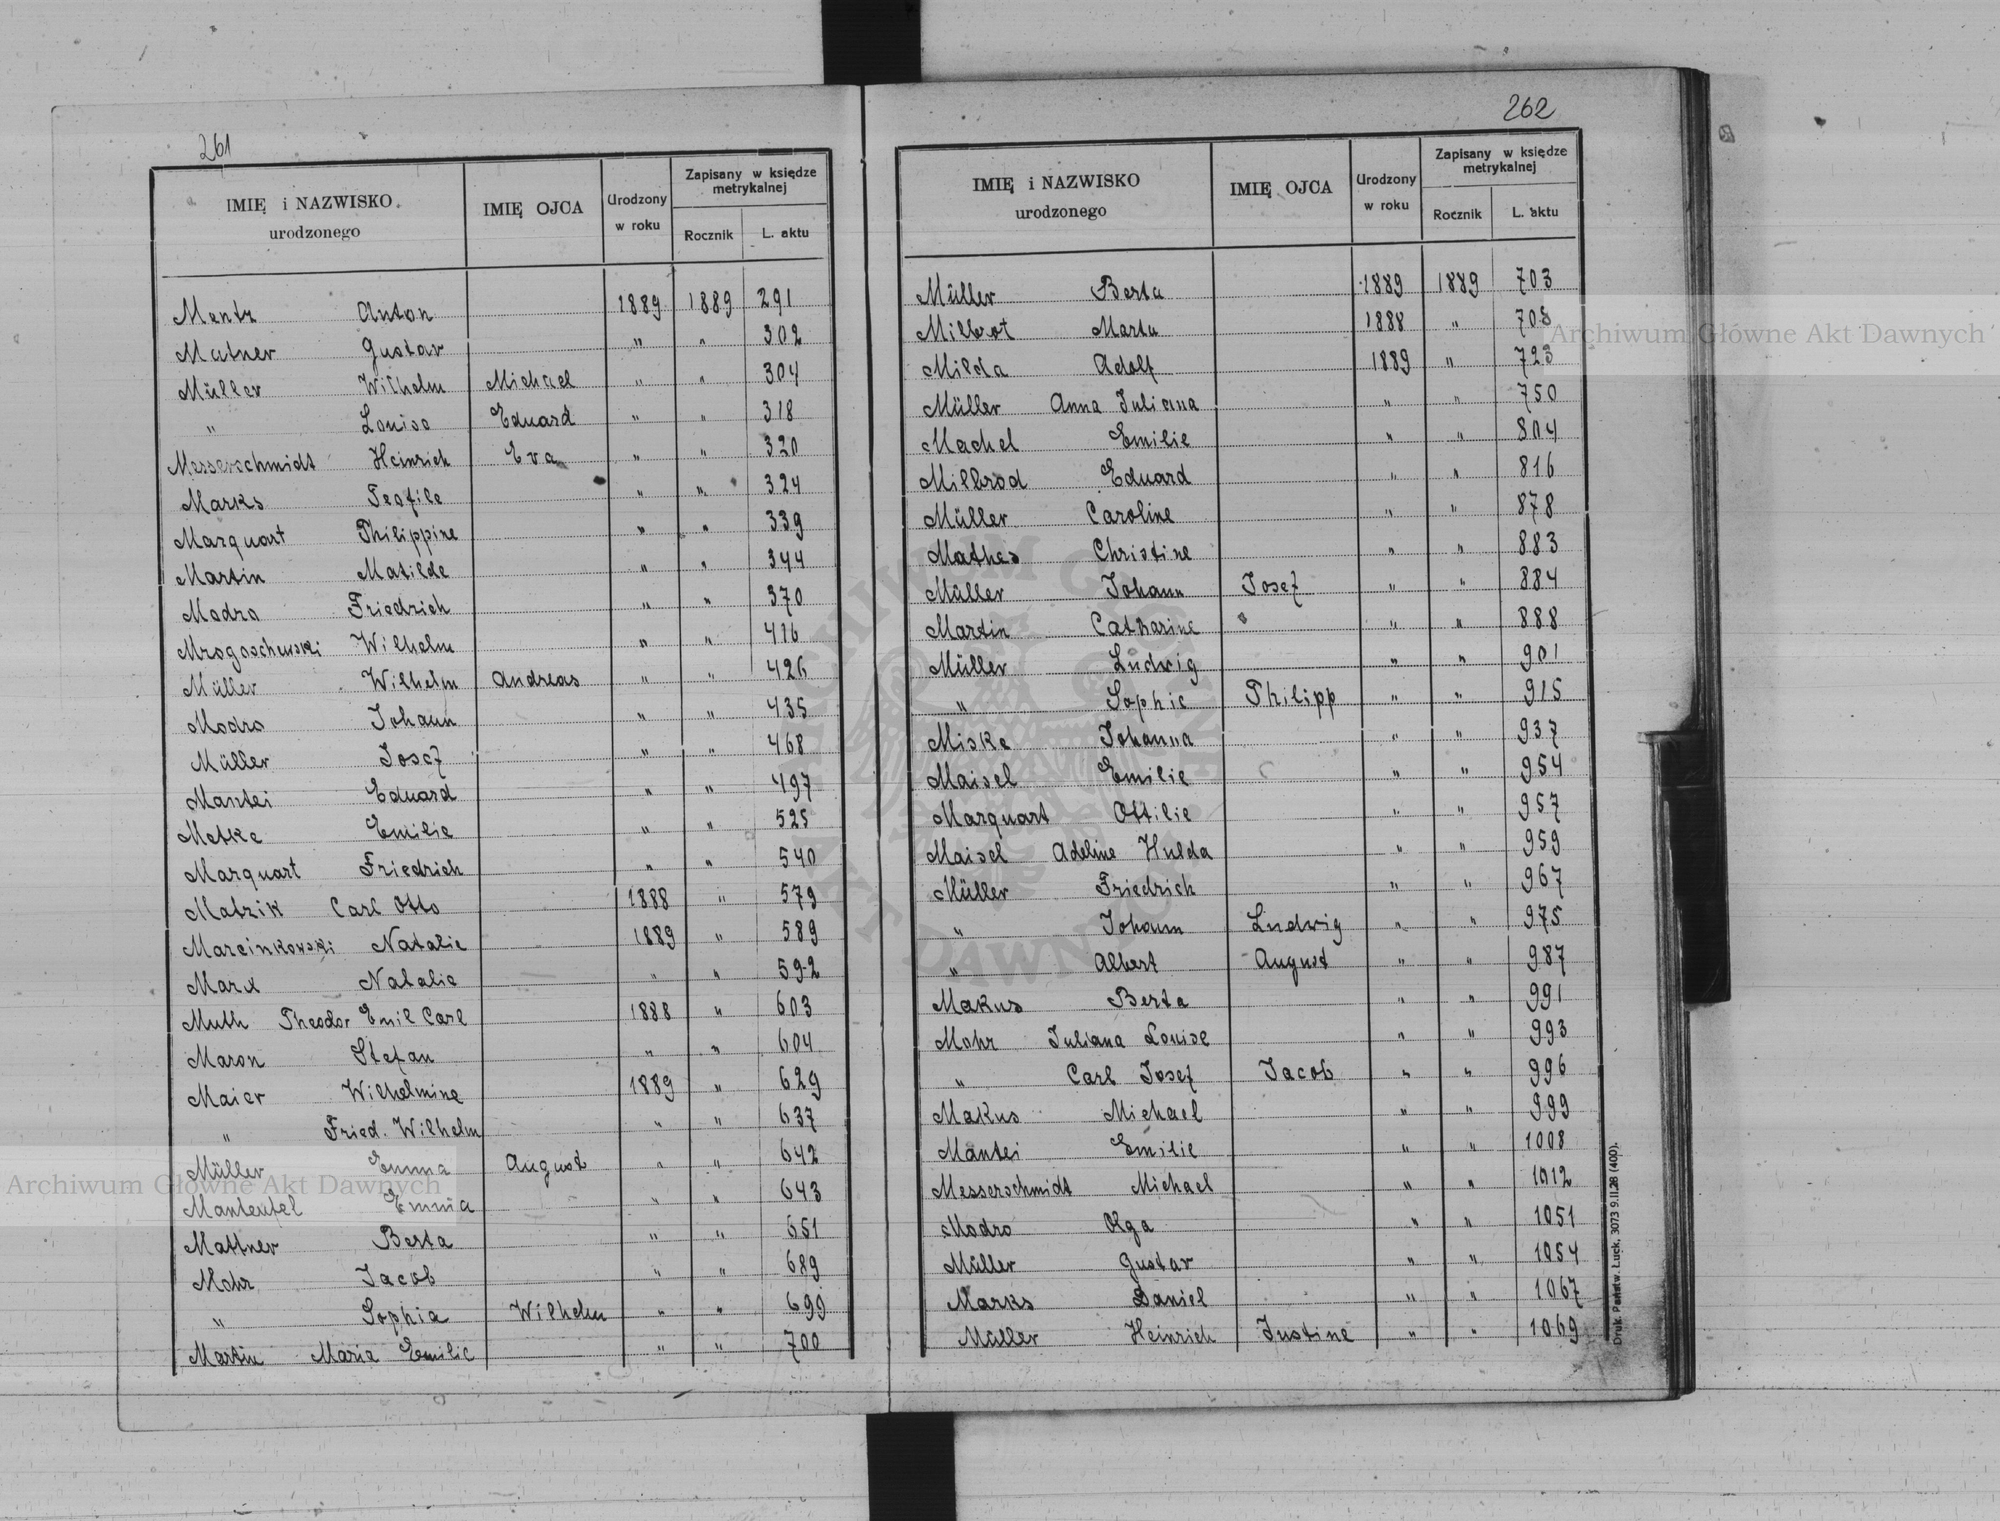 261
IMIĘ i NAZWISKO urodzonego IMIĘ OJCA Urodzony w roku Zapisany w księdze metrykalnej Rocznik L. aktu
Mentz Anton 1889 1889 291
Matner Gustav " " 302
Müller Wilhelm Michael " " 304
" Louise Eduard " " 318
Messerschmidt Heinrich Eva " " 320
Marks Teofile " " 324
Marquart Philippine " " 339
Martin Matilde " " 344
Modro Friedrich " " 370
Mrogoschewski Wilhelm " " 416
Müller Wilhelm Andreas " " 426
Modro Johann " " 435
Müller Josef " " 468
Mantei Eduard " " 497
Metke Emilie " " 525
Marquart Friedrich " " 540
Matzik Carl Otto 1888 " 579
Marcinkowski Natalie 1889 " 589
Marx Natalie " " 592
Muth Theodor Emil Carl 1888 " 603
Maron Stefan " " 604
Maier Wilhelmine 1889 " 629
" Fried. Wilhelm " " 637
Müller Emma August " " 642
Manteufel Emma " " 643
Mattner Berta " " 651
Mohr Jacob " " 689
" Sophia Wilhelm " " 699
Martin Marie Emilie " " 700
262
IMIĘ i NAZWISKO urodzonego IMIĘ OJCA Urodzony w roku Zapisany w księdze metrykalnej Rocznik L. aktu
Müller Berta 1889 1889 703
Milbrot Marta 1888 " 708
Milda Adolf 1889 " 723
Müller Anna Juliana " " 750
Machel Emilie " " 804
Milbrod Eduard " " 816
Müller Caroline " " 878
Mathes Christine " " 883
Müller Johann Josef " " 884
Martin Catharine " " 888
Müller Ludwig " " 901
" Sophie Philipp " " 915
Miske Johanna " " 937
Maisel Emilie " " 954
Marquart Ottilie " " 957
Maisel Adeline Hulda " " 959
Müller Friedrich " " 967
" Johann Ludwig " " 975
" Albert August " " 987
Makus Berta " " 991
Mohr Juliana Louise " " 993
" Carl Josef Jacob " " 996
Makus Michael " " 999
Mantei Emilie " " 1008
Messerschmidt Michael " " 1012
Modro Olga " " 1051
Müller Gustav " " 1054
Marks Daniel " " 1067
Müller Heinrich Justine " " 1069
Druk. Państw. Łuck, 3073 9.II.28 (400).
Archiwum Główne Akt Dawnych
Archiwum Główne Akt Dawnych
ARCHIWUM GŁÓWNE AKT DAWNYCH